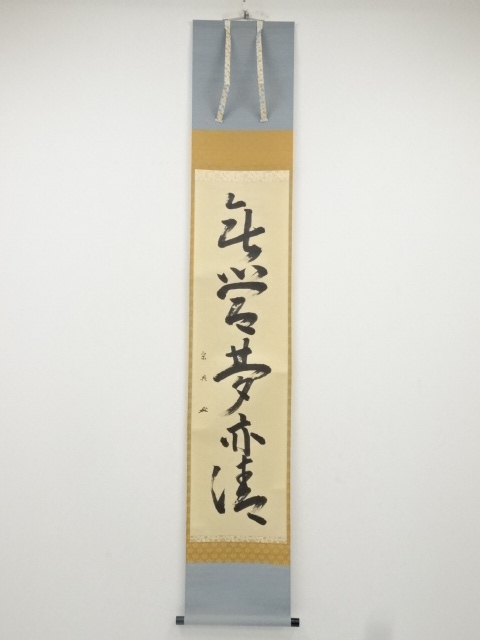 無営夢亦清